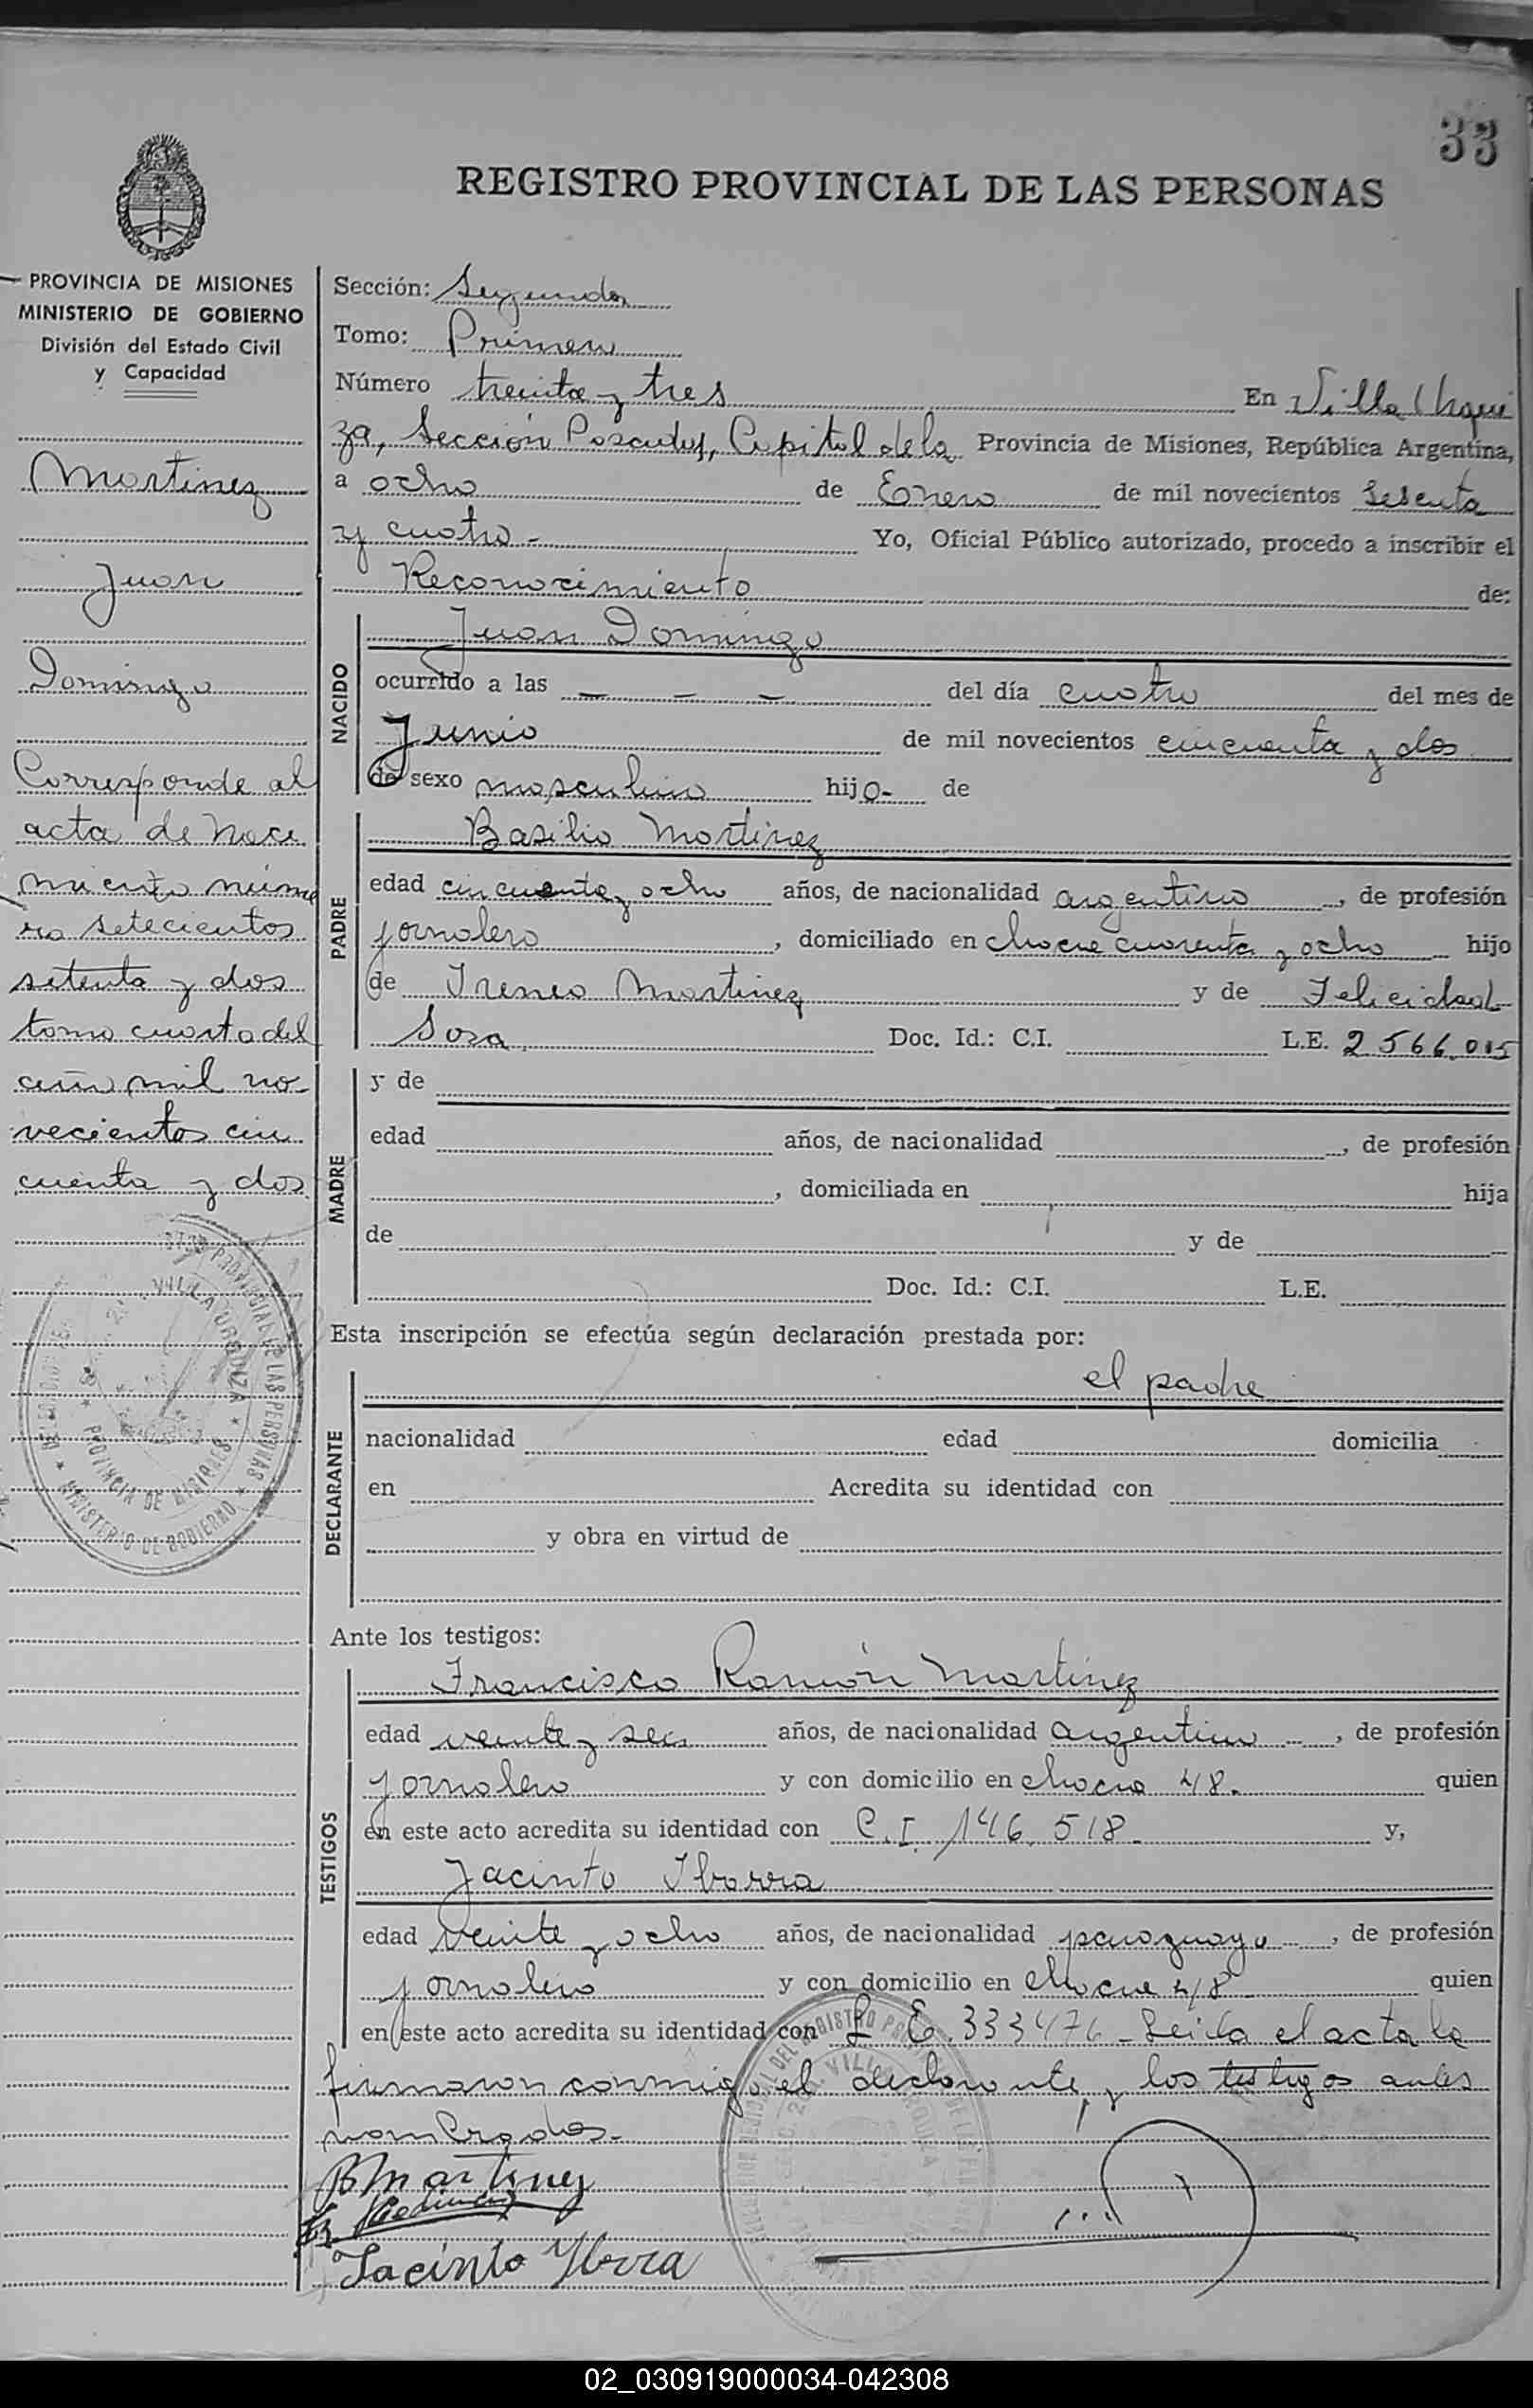 33
REGISTRO PROVINCIAL DE LAS PERSONAS
PROVINCIA DE MISIONES
MINISTERIO DE GOBIERNO
División del Estado Civil
y Capacidad
Martinez
Juan
Domingo
Corresponde al
acta de naci
miento núme
ro setecientos
setenta y dos
tomo cuarto del
año mil no-
vecientos cin
cuenta y dos
VILLA URQUIZA
PROVINCIA DE MISIONES
MINISTERIO DE GOBIERNO
Sección: Segunda
Tomo: Primero
Número treinta y tres En Villa Urqui
za, Sección Posadas, Capital de la Provincia de Misiones, República Argentina,
a ocho de Enero de mil novecientos sesenta
y cuatro - Yo, Oficial Público autorizado, procedo a inscribir el
Reconocimiento de:
NACIDO
Juan Domingo
ocurrido a las — — — del día cuatro del mes de
Junio de mil novecientos cincuenta y dos
de sexo masculino hijo- de
PADRE
Basilio Martinez
edad cincuenta y ocho años, de nacionalidad argentino, de profesión
jornalero, domiciliado en chacra cuarenta y ocho hijo
de Ireneo Martinez y de Felicidad
Sosa Doc. Id.: C.I. L.E. 2.566.015
MADRE
y de
edad años, de nacionalidad , de profesión
, domiciliada en hija
de y de
Doc. Id.: C.I. L.E.
Esta inscripción se efectúa según declaración prestada por:
DECLARANTE
el padre
nacionalidad edad domicilia
en Acredita su identidad con
y obra en virtud de
Ante los testigos:
TESTIGOS
Francisco Ramón Martínez
edad veinte y seis años, de nacionalidad argentino, de profesión
jornalero y con domicilio en chacra 48. quien
en este acto acredita su identidad con C.I. 146.518- y,
Jacinto Ibarra
edad veinte y ocho años, de nacionalidad paraguayo, de profesión
jornalero y con domicilio en chacra 48 quien
en este acto acredita su identidad con L E. 333476 - Leida el acta la
firmaron conmigo el declarante y los testigos antes
nombrados.-
B Martinez
Jacinto Ibarra
02_030919000034-042308